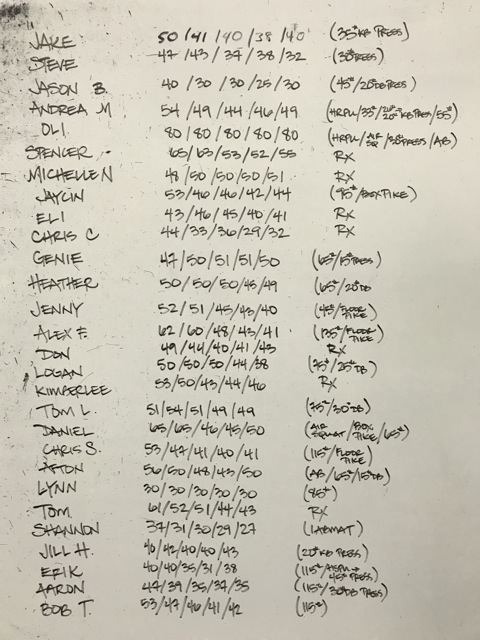 JAKE 50/41/40/38/40 (35# KB PRESS)
STEVE 47/43/37/38/32 (30# PRESS)
JASON B. 40/30/30/25/30 (45#/20# DB PRESS)
ANDREA M 54/49/44/46/49 (HRPU/35#/KB PRESS/55#)
OLI 80/80/80/80/80 (HRPU/AIR SQ/30# PRESS/AB)
SPENCER 65/63/53/52/55 RX
MICHELLE N 48/50/50/50/51 RX
JAYLIN 53/46/46/42/44 (95#/BOX PIKE)
ELI 43/46/45/40/41 RX
CHRIS C 44/33/36/29/32 RX
GENIE 47/50/51/51/50 (65#/15# PRESS)
HEATHER 50/50/50/48/49 (65#/20# DB)
JENNY 52/51/45/43/40 (45#/FLOOR PIKE)
ALEX F. 62/60/48/43/41 (135#/FLOOR PIKE)
DON 49/44/40/41/43 RX
LOGAN 50/50/50/44/38 (75#/25# DB)
KIMBERLEE 53/50/43/44/46 RX
TOM L. 51/54/51/49/49 (75#/30# DB)
DANIEL 65/65/46/45/50 (AIR SQUAT/BOX PIKE/65#)
CHRIS S. 53/47/41/40/41 (115#/FLOOR PIKE)
AFTON 56/50/48/43/50 (AB/65#/15# DB)
LYNN 30/30/30/30/30 (85#)
TOM 61/52/51/44/43 RX
SHANNON 37/31/30/29/27 (1 ABMAT)
JILL H. 46/42/40/40/43 (20# KB PRESS)
ERIK 40/40/35/31/38 (115#/HSPU → 45# PRESS)
AARON 47/39/35/34/35 (115#/30# DB PRESS)
BOB T. 53/47/46/41/42 (115#)